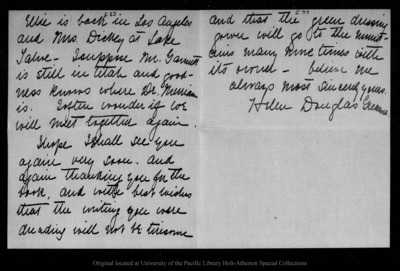 Ellie is back in Los Angeles
and Mrs. Dickey at Lake
Tahoe - I suppose Mr. Garnett
is still in Utah and good-
ness knows where Dr. Merriam
is. I often wonder if we
will meet together again.
I hope I shall see you
again very soon. and
again thanking you for the
book, and with best wishes
that the writing you were
dreading will not be tiresome
and that the green dressing
gown will go to the mount-
ains many more times with
its owner - believe me
always most sincerely yours.
Helen Douglas
Original located at University of the Pacific Library Holt-Atherton Special Collections